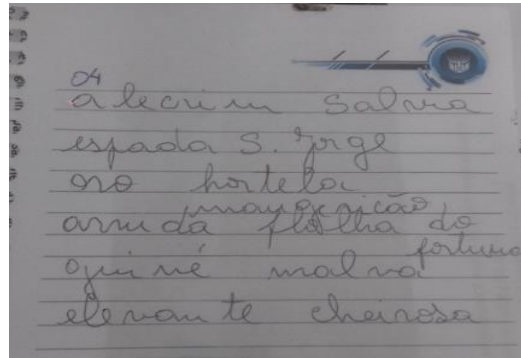 04
alecrim Salvia
espada S. Jorge
hortela
manjericão
arruda folha da
fortuna
guiné malva
elevante cheirosa